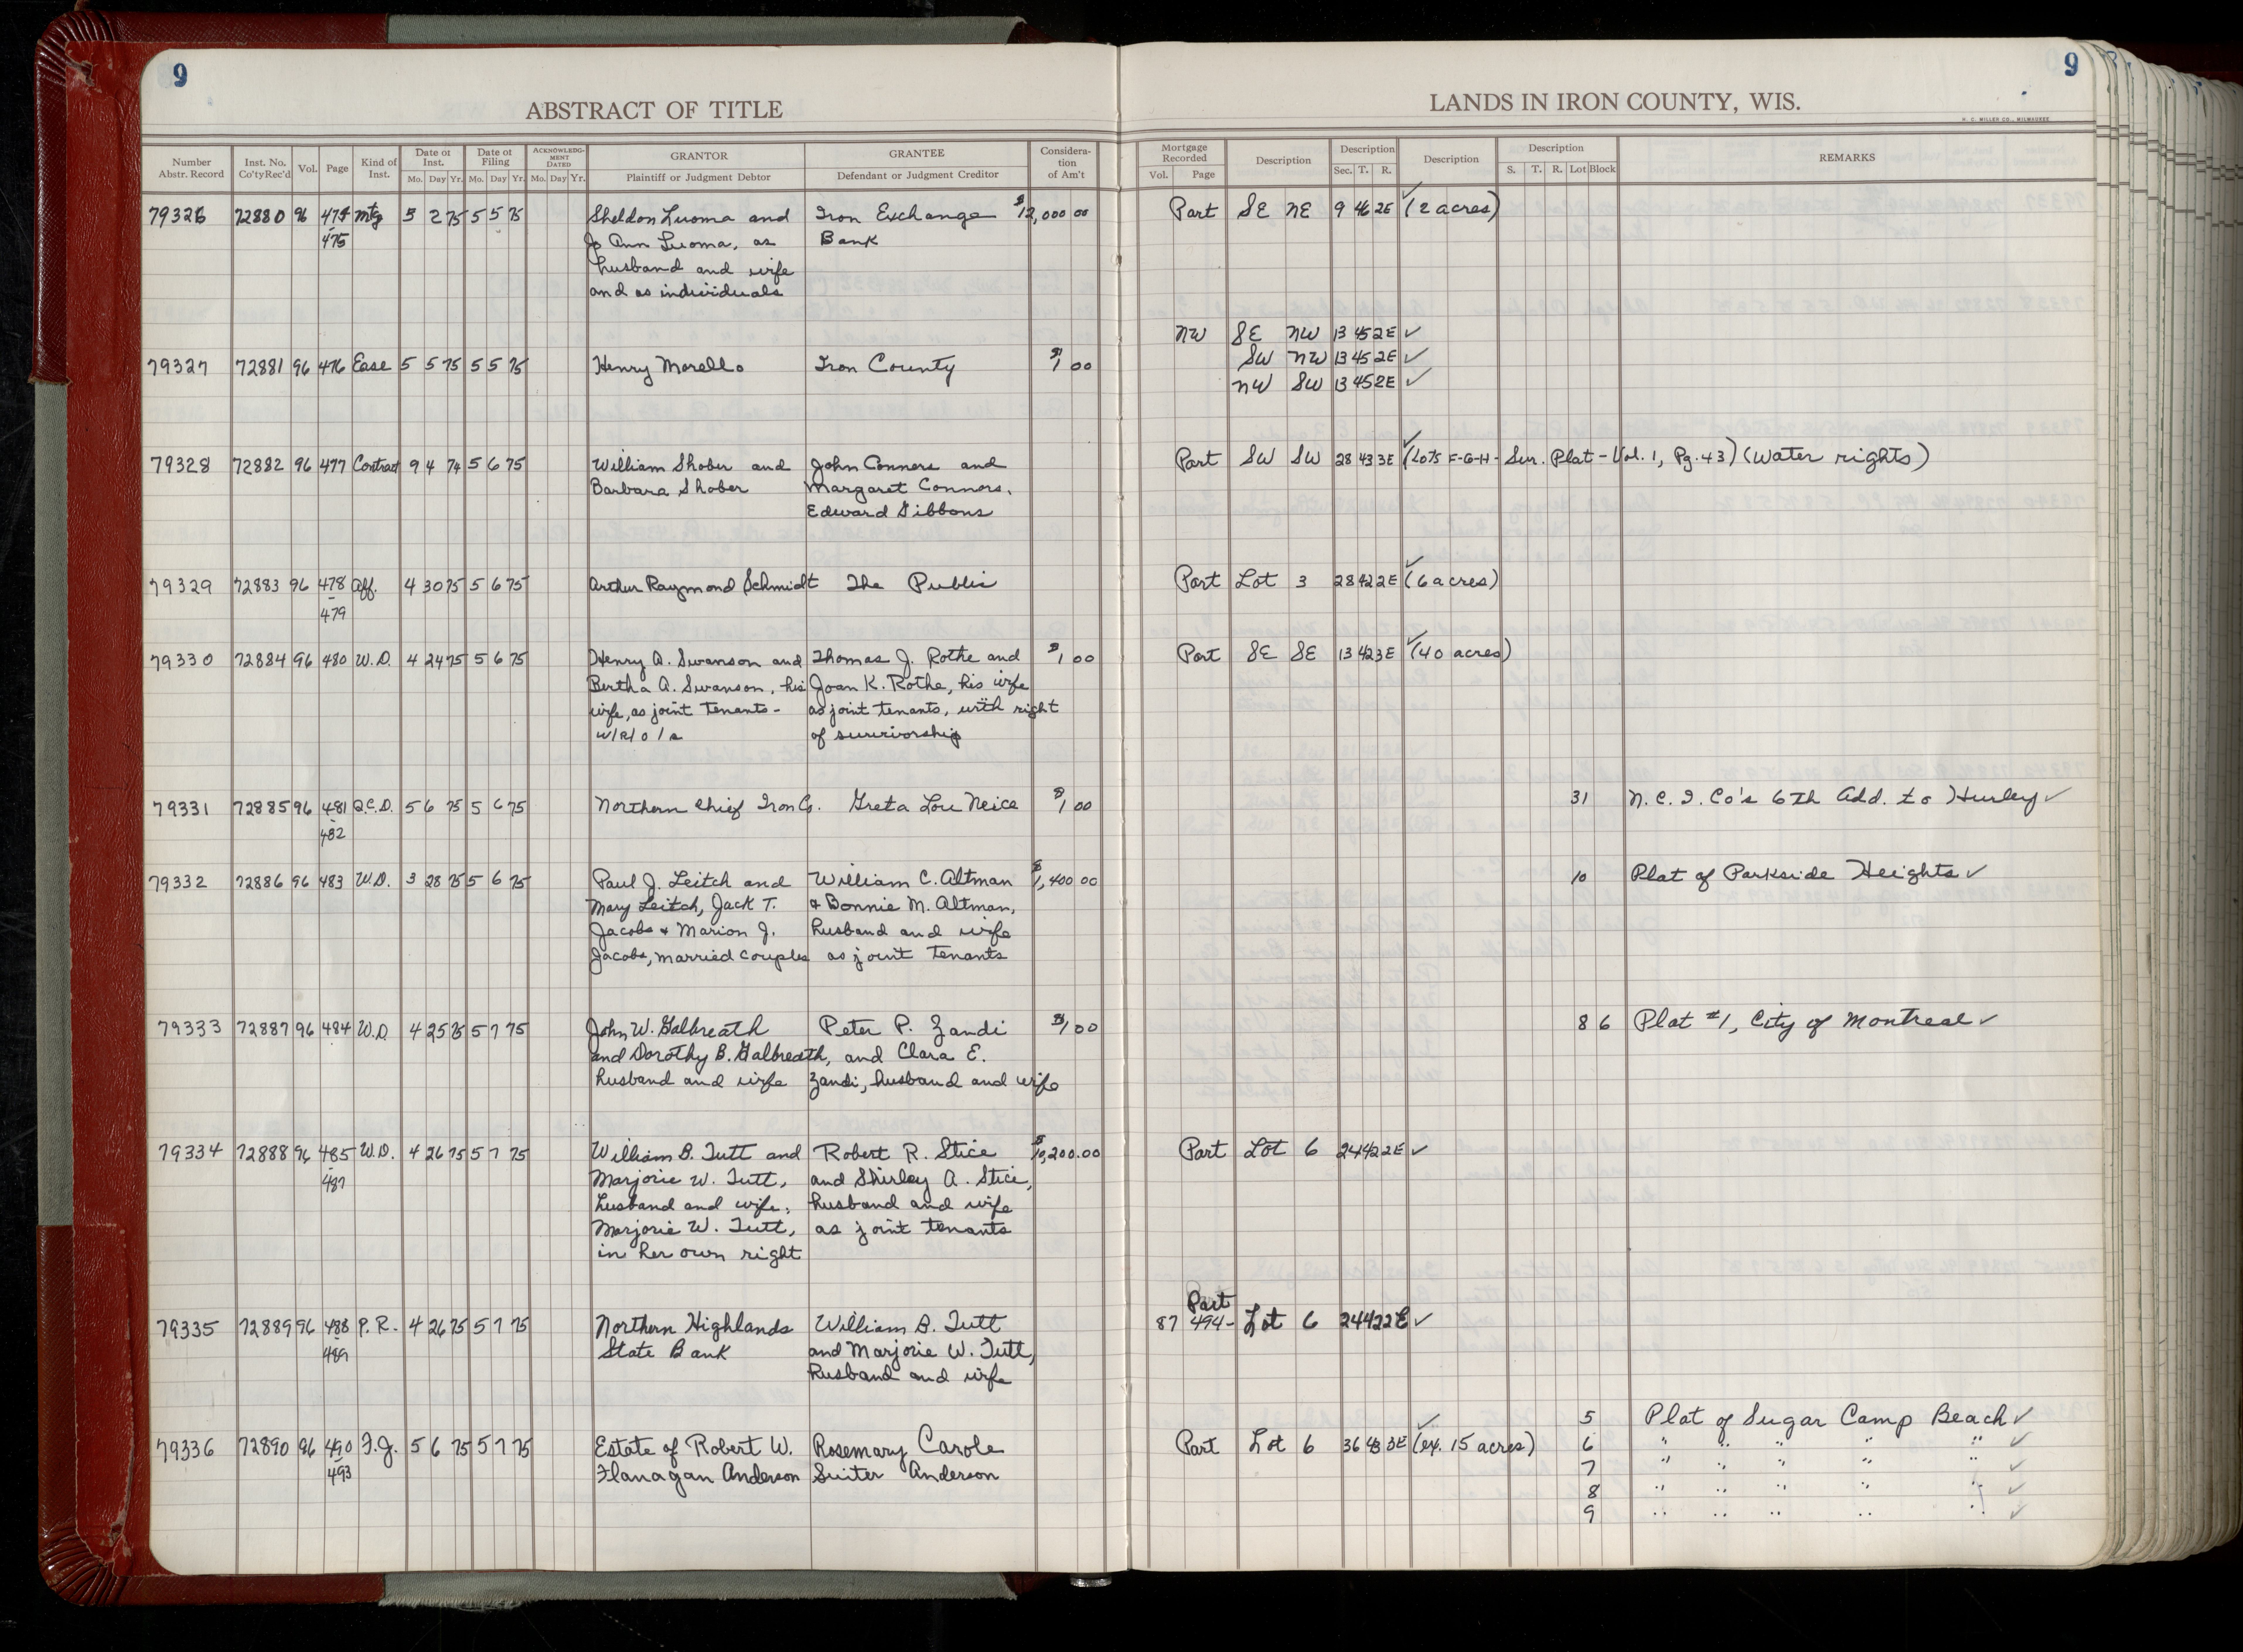 9
9
ABSTRACT OF TITLE
LANDS IN IRON COUNTY, WIS.
H. C. MILLER CO., MILWAUKEE
Number Abstr. Record Inst. No. Co'ty Rec'd Vol. Page Kind of Inst. Date of Inst. Mo. Day Yr. Date of Filing Mo. Day Yr. ACKNOWLEDGMENT DATED Mo. Day Yr. GRANTOR Plaintiff or Judgment Debtor GRANTEE Defendant or Judgment Creditor Consideration of Am't
Mortgage Recorded Vol. Page Description Description Sec. T. R. Description Description S. T. R. Lot Block REMARKS
79326 72880 96 474 Mtg 5 2 75 5 5 75 Sheldon Luoma and Iron Exchange $12,000 00 Part SE NE 9 46 2E ✓ (2 acres)
-475 Jo Ann Luoma, as Bank
husband and wife
and as individuals
NW SE NW 13 45 2E ✓
SW NW 13 45 2E ✓
79327 72881 96 476 Ease 5 5 75 5 5 75 Henry Morello Iron County $1 00
NW SW 13 45 2E ✓
79328 72882 96 477 Contract 9 4 74 5 6 75 William Shober and John Connors and Part SW SW 28 43 3E ✓ (Lots F-G-H- Sur. Plat - Vol. 1, Pg. 43) (Water rights)
Barbara Shober Margaret Connors,
Edward Gibbons
79329 72883 96 478 Aff. 4 30 75 5 6 75 Arthur Raymond Schmidt The Public Part Lot 3 28 42 2E ✓ (6 acres)
-479
79330 72884 96 480 W.D. 4 24 75 5 6 75 Henry A. Swanson and Thomas J. Rothe and $1 00 Part SE SE 13 42 3E ✓ (40 acres)
Bertha A. Swanson, his Joan K. Rothe, his wife
wife, as joint tenants - as joint tenants, with right
w/r/o/s of survivorship
79331 72885 96 481 Q.C.D. 5 6 75 5 6 75 Northern Chief Iron Co. Greta Lou Neice $1 00 31 N.C.I. Co's 6th Add. to Hurley ✓
-482
79332 72886 96 483 W.D. 3 28 75 5 6 75 Paul J. Leitch and William C. Altman $1,400 00 10 Plat of Parkside Heights ✓
Mary Leitch, Jack T. & Bonnie M. Altman,
Jacobs & Marion J. husband and wife
Jacobs, married couples as joint tenants
79333 72887 96 484 W.D. 4 25 75 5 7 75 John W. Galbreath Peter P. Zandi $1 00 8 6 Plat #1, City of Montreal ✓
and Dorothy B. Galbreath, and Clara E.
husband and wife Zandi, husband and wife
79334 72888 96 485 W.D. 4 26 75 5 7 75 William B. Tutt and Robert R. Stice $10,200.00 Part Lot 6 24 42 2E ✓
-487 Marjorie W. Tutt, and Shirley A. Stice,
husband and wife; husband and wife
Marjorie W. Tutt, as joint tenants
in her own right
79335 72889 96 488 P.R. 4 26 75 5 7 75 Northern Highlands William B. Tutt 87 494- Part Lot 6 24 42 2E ✓
-489 State Bank and Marjorie W. Tutt,
husband and wife
5 Plat of Sugar Camp Beach ✓
79336 72890 96 490 F.J. 5 6 75 5 7 75 Estate of Robert W. Rosemary Carole Part Lot 6 36 43 3E ✓ (ex. 15 acres) 6 " " " " " ✓
-493 Flanagan Anderson Suiter Anderson 7 " " " " " ✓
8 " " " " " ✓
9 " " " " " ✓